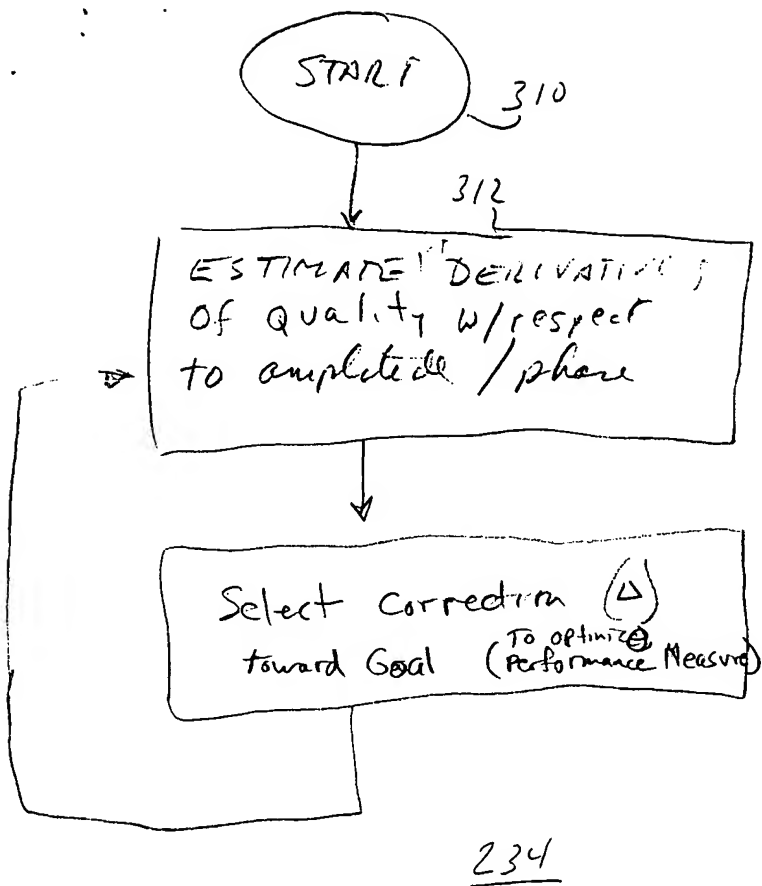 START
310
312
ESTIMATE "DERIVATIVE"
Of Quality w/respect
to amplitude / phase
Select Correction (Δ)
toward Goal (To optimize
Performance Measure)
234